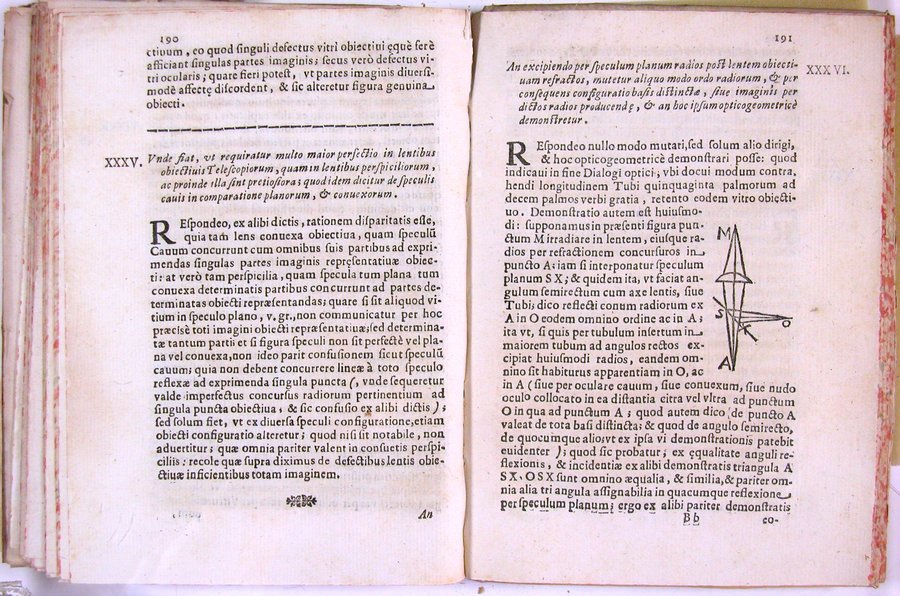 190
ctiuum, eo quod singuli defectus vitri obiectiui equè ferè
afficiant singulas partes imaginis; secus verò defectus vi-
tri ocularis; quare fieri potest, vt partes imaginis diuersi-
modè affectę discordent, & sic alteretur figura genuina
obiecti.
XXXV. Vnde fiat, vt requiratur multo maior perfectio in lentibus
obiectiuis Telescopiorum, quam in lentibus perspiciliorum,
ac proinde illa sint pretiosiora; quod idem dicitur de speculis
cauis in comparatione planorum, & conuexorum.
REspondeo, ex alibi dictis, rationem disparitatis esse,
quia tam lens conuexa obiectiua, quam speculū
Cauum concurrunt cum omnibus suis partibus ad expri-
mendas singulas partes imaginis repręsentatiuæ obiec-
ti: at verò tam perspicilia, quam specula tum plana tum
conuexa determinatis partibus concurrunt ad partes de-
terminatas obiecti repręsentandas; quare si sit aliquod vi-
tium in speculo plano, v. gr., non communicatur per hoc
præcisè toti imagini obiecti repræsentatiuæ; sed determina-
tæ tantum parti: et si figura speculi non sit perfectè vel pla-
na vel conuexa, non ideo parit confusionem sicut speculū
cauum; quia non debent concurrere lineæ à toto speculo
reflexæ ad exprimenda singula puncta (, vnde sequeretur
valde imperfectus concursus radiorum pertinentium ad
singula puncta obiectiua, & sic confusio ex alibi dictis);
sed solum fiet, vt ex diuersa speculi configuratione, etiam
obiecti configuratio alteretur; quod nisi sit notabile, non
aduertitur; quæ omnia pariter valent in consuetis perspi-
ciliis: recole quæ supra diximus de defectibus lentis obie-
ctiuæ inficientibus totam imaginem.
An
191
An excipiendo per speculum planum radios post lentem obiecti- XXXVI.
uam refractos, mutetur aliquo modo ordo radiorum, & per
consequens configuratio basis distinctæ, siue imaginis per
dictos radios producendę, & an hoc ipsum opticogeometricè
demonstretur.
REspondeo nullo modo mutari, sed solum alio dirigi,
& hoc opticogeometricè demonstrari posse: quod
indicaui in fine Dialogi optici, vbi docui modum contra,
hendi longitudinem Tubi quinquaginta palmorum ad
decem palmos verbi gratia, retento eodem vitro obiecti-
uo. Demonstratio autem est huiusmo-
di: supponamus in præsenti figura pun-
ctum M irradiare in lentem, eiusque ra-
dios per refractionem concursuros in
puncto A; iam si interponatur speculum
planum S X; & quidem ita, vt faciat an-
gulum semirectum cum axe lentis, siue
Tubi; dico reflecti conum radiorum ex
A in O eodem omnino ordine ac in A;
ita vt, si quis per tubulum insertum in
maiorem tubum ad angulos rectos ex-
cipiat huiusmodi radios, eandem om-
nino sit habiturus apparentiam in O, ac
in A (siue per oculare cauum, siue conuexum, siue nudo
oculo collocato in ea distantia citra vel vltra ad punctum
O in qua ad punctum A; quod autem dico de puncto A
valeat de tota basi distincta; & quod de angulo semirecto,
de quocumque alio; vt ex ipsa vi demonstrationis patebit
euidenter); quod sic probatur; ex ęqualitate anguli re-
flexionis, & incidentiæ ex alibi demonstratis triangula A
SX, OSX sunt omnino æqualia, & similia, & pariter om-
nia alia triangula assignabilia in quacumque reflexione
per speculum planum; ergo ex alibi pariter demonstratis
Bb co-
M
S
X
O
A